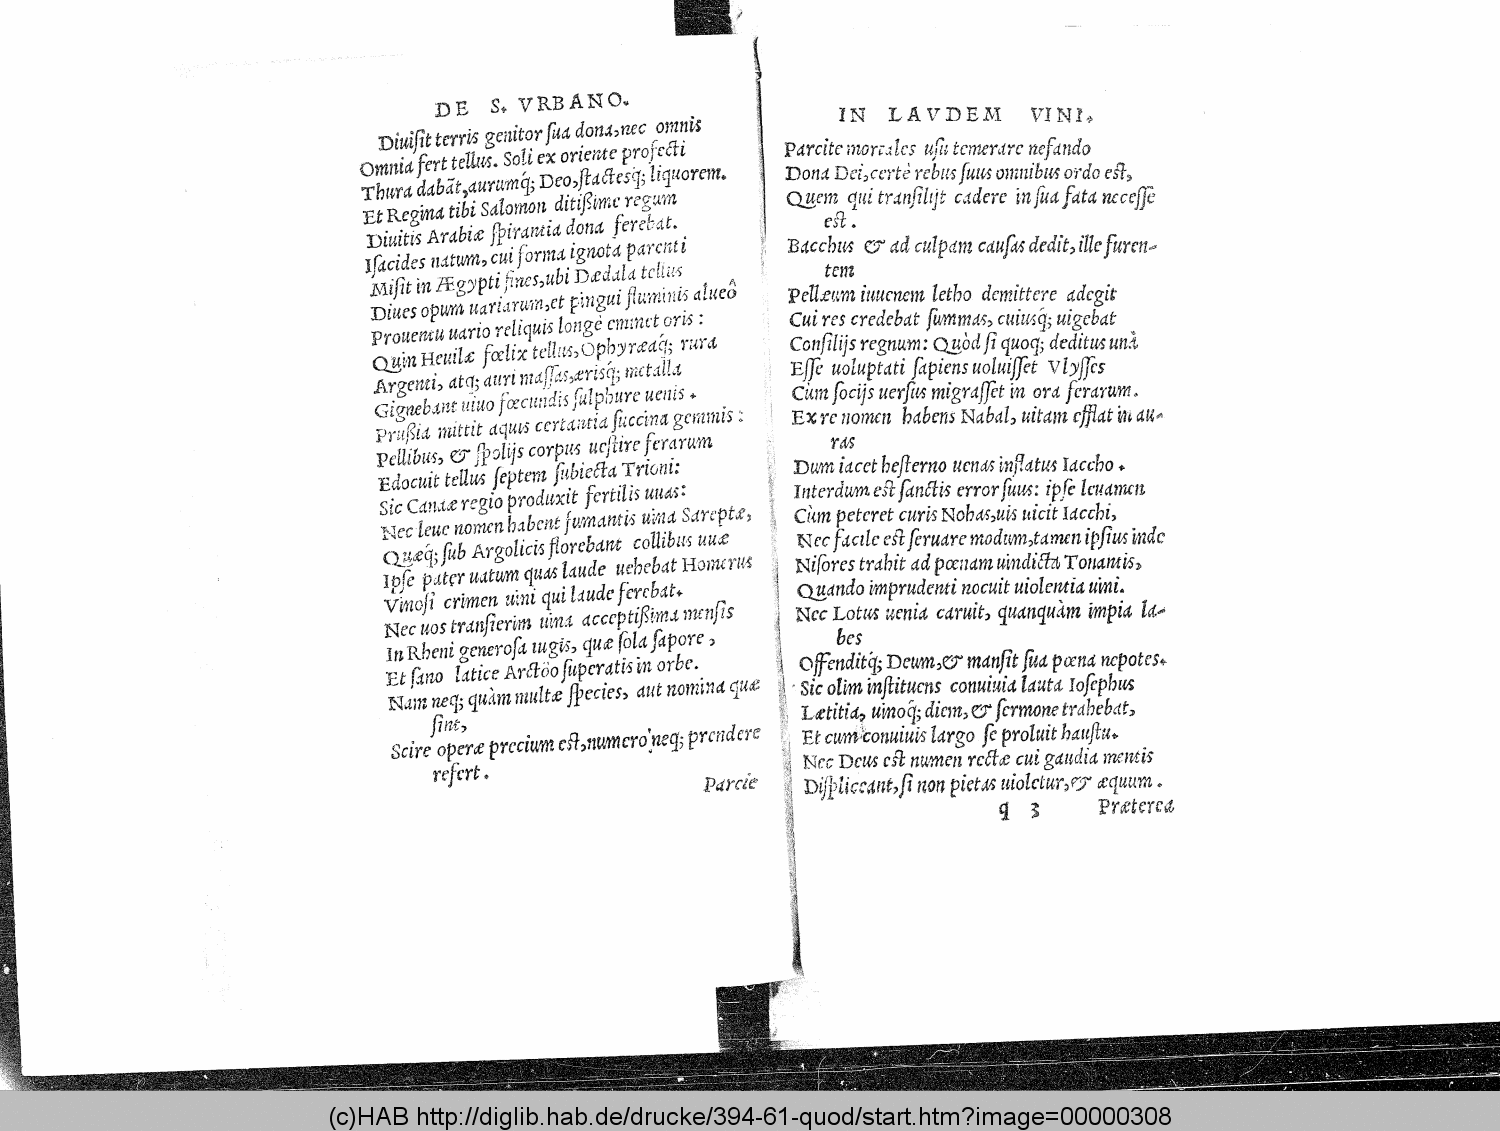 DE S. VRBANO.
Diuiſit terris genitor ſua dona, nec omnis
Omnia fert tellus. Soli ex oriente profecti
Thura dabãt, aurumq́; Deo, ſtactesq́; liquorem.
Et Regina tibi Salomon ditißime regum
Diuitis Arabiæ ſpirantia dona ferebat.
Iſacides natum, cui forma ignota parenti
Miſit in Ægypti fines, ubi Dædala tellus
Diues opum uariarum, et pingui fluminis alueô
Prouentu uario reliquis longè eminet oris:
Quin Heuilæ fœlix tellus, Ophyræaq́; rura
Argenti, atq; auri maſſas, ærisq́; metalla
Gignebant uiuo fœcundis ſulphure uenis.
Prußia mittit aquis certantia ſuccina gemmis:
Pellibus, & ſpolijs corpus ueſtire ferarum
Edocuit tellus ſeptem ſubiecta Trioni:
Sic Canaæ regio produxit fertilis uuas:
Nec leue nomen habent fumantis uina Sareptæ,
Quæq́; ſub Argolicis florebant collibus uuæ
Ipſe pater uatum quas laude uehebat Homerus
Vinoſi crimen uini qui laude ferebat.
Nec uos tranſierim uina acceptißima menſis
In Rheni generoſa iugis, quæ ſola ſapore,
Et ſano latice Arctôo ſuperatis in orbe.
Nam neq; quàm multæ ſpecies, aut nomina quæ
ſint,
Scire operæ precium eſt, numero neq; prendere
refert.
Parcie
IN LAVDEM VINI.
Parcite mortales uſu temerare nefando
Dona Dei, certè rebus ſuus omnibus ordo eſt,
Quem qui tranſilijt cadere in ſua fata neceſſe
eſt.
Bacchus & ad culpam cauſas dedit, ille furen-
tem
Pellæum iuuenem letho demittere adegit
Cui res credebat ſummas, cuiusq́; uigebat
Conſilijs regnum: Quòd ſi quoq; deditus unâ
Eſſe uoluptati ſapiens uoluiſſet Vlyſſes
Cùm ſocijs uerſus migraſſet in ora ferarum.
Ex re nomen habens Nabal, uitam efflat in au-
ras
Dum iacet heſterno uenas inflatus Iaccho.
Interdum eſt ſanctis error ſuus: ipſe leuamen
Cùm peteret curis Nohas, uis uicit Iacchi,
Nec facile eſt ſeruare modum, tamen ipſius inde
Niſores trahit ad pœnam uindicta Tonantis,
Quando imprudenti nocuit uiolentia uini.
Nec Lotus uenia caruit, quanquàm impia la-
bes
Offenditq́; Deum, & manſit ſua pœna nepotes.
Sic olim inſtituens conuiuia lauta Ioſephus
Lætitia, uinoq́; diem, & ſermone trahebat,
Et cum conuiuis largo ſe proluit hauſtu.
Nec Deus eſt numen rectæ cui gaudia mentis
Diſpliceant, ſi non pietas uioletur, & æquum.
q 3
Præterea
(c)HAB http://diglib.hab.de/drucke/394-61-quod/start.htm?image=00000308